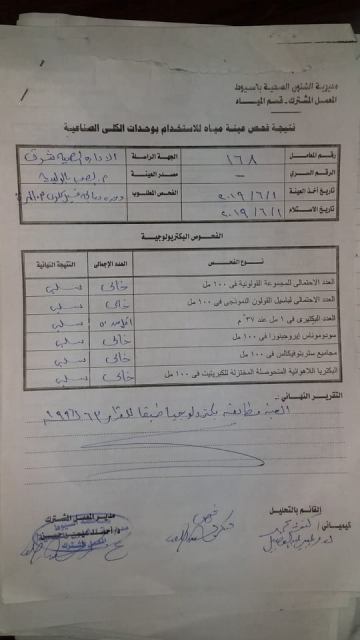 مديرية الشئون الصحية بأسيوط
المعمل المشترك - قسم الميـاه
نتيجة فحص عينة مياه للاستخدام بوحدات الكلى الصناعية
رقم المعامل ١٦٨ الجهة الراسلة الادارة الصحية شرق
الرقم السرى - مصدر العينة
تاريخ أخذ العينة ٢٠١٩/٦/١ الفحص المطلوب
تاريخ الاستلام ٢٠١٩/٦/١
الفحوص البكتريولوجية
نوع الفحص العدد الإجمالى النتيجة النهائية
العدد الاحتمالى للمجموعة القولونية فى ١٠٠ مل خالى سلبى
العدد الاحتمالى لباسيل القولون النموذجى فى ١٠٠ مل خالى سلبى
العدد البكتيرى فى ١ مل عند ٣٧ م اقل من ٥٠ سلبى
سودوموناس ايروجينوزا فى ١٠٠ مل خالى سلبى
مجاميع ستربتوفيكالس فى ١٠٠ مل خالى سلبى
البكتريا اللاهوائية المتحوصلة المختزلة للكبريتيت فى ١٠٠ مل خالى سلبى
التقرير النهائى :-
العينة مطابقة بكتريولوجيا طبقا للقرار ٦٣ / ١٩٩٦م
القائم بالتحليل مدير المعمل المشترك
كيميائى /